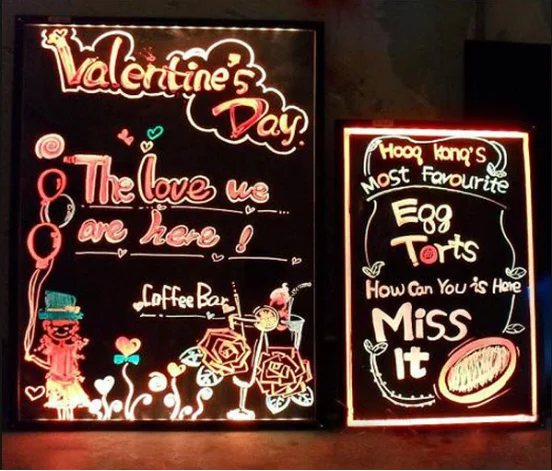 Valentine's
Day
The love we
are here !
Coffee Bar
Hooq konq's
Most Favourite
Egg
Torts
How Can You is Here
Miss
It